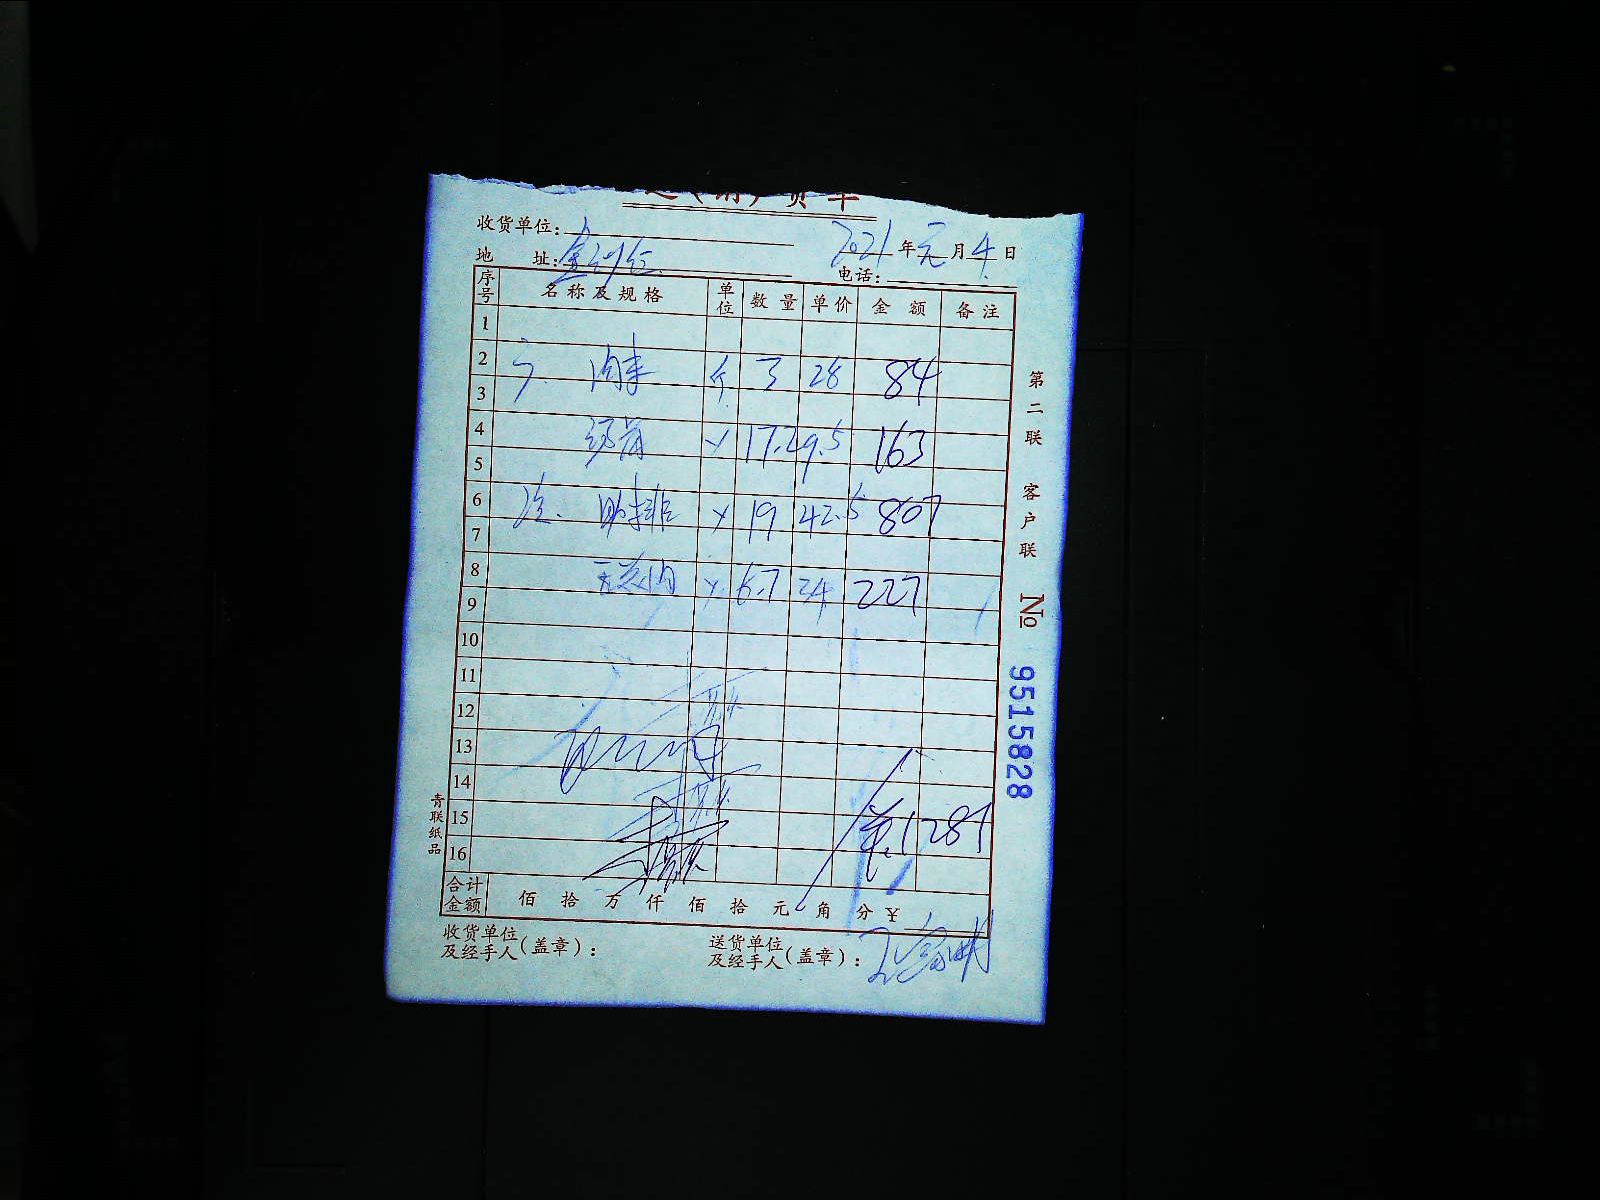 送(销)货单
收货单位:
2021年元月4日
地 址:
电话:
序号 名称及规格 单位 数量 单价 金额 备注
1
2 肉末 斤 3 28 84
3
4 筒骨 〃 17.2 9.5 163
5
6 肋排 〃 19 42.5 807
7
8 五花肉 〃 6.7 34 227
9
10
11
12
13
14
15 1281
16
合计金额 佰 拾 万 仟 佰 拾 元 角 分 ¥
收货单位及经手人(盖章):
送货单位及经手人(盖章):
第二联 客户联 No 9515828
青联纸品